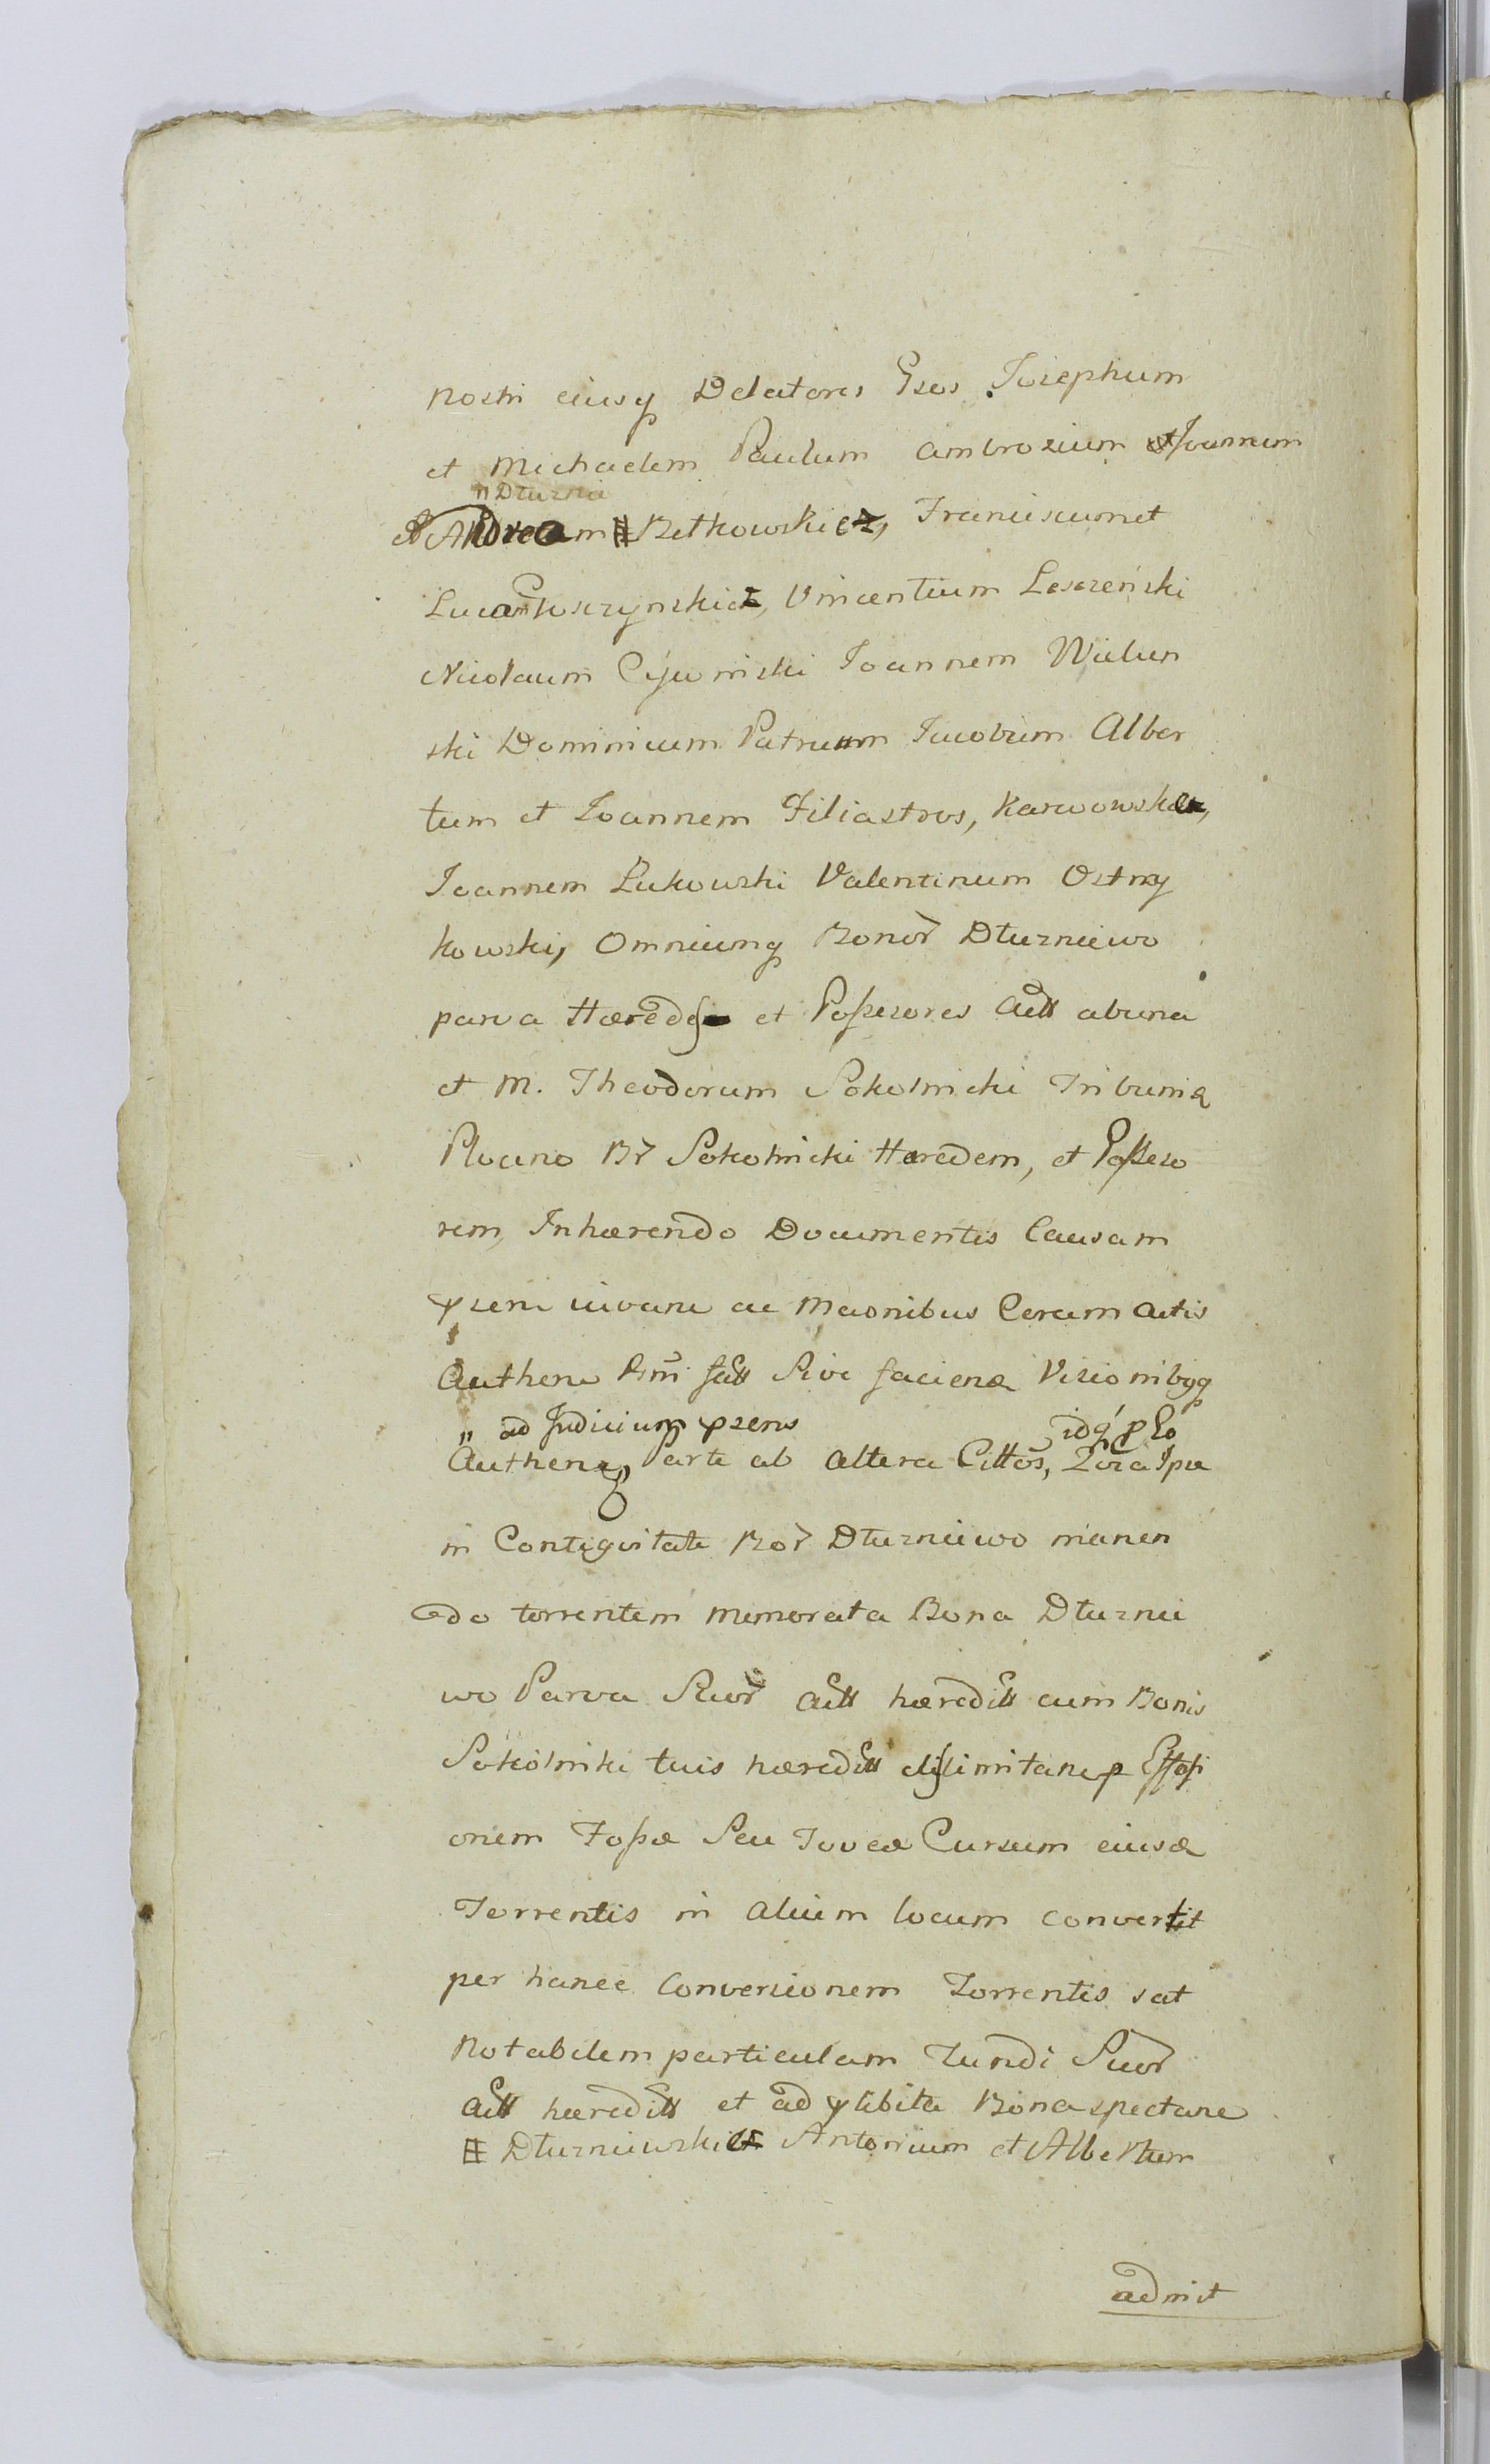 nostri eiusq Delatores Gsos Josephum
et Michaelem Paulum Ambrosium et Joannem
"Dłuznia
et Andream # Betkowskich, Franciscum et
Lucam Koszynskich, Vincentium Leszeński
Nicolaum Cywinski Joannem Wielun
ski Dominicum Patruum Jacobum Alber
tum et Joannem Filiastros, Karwowskich,
Joannem Lukowski Valentinum Ostrzy
kowski, Omniumq Bonor Dłuzniewo
parva Hæredes et Possesores Actt ab una
et M. Theodorum Sokolnicki Tribunū
Plocens Br Sokolniki Hæredem, et Posseso
rem, Inhærendo Documentis Causam
psen iuvan ac Maonibus Coram actis
Authen fact Sive facien Visionibqq
" ad Judicium psens idq p Eo
Authen, Parte ab altera Cittos, Ipse
in Contiguitate Bor Dłuzniewo manen
do torrentem memorata Bona Dłuznie
wo Parva Suor Actt hæreditt cum Bonis
Sokolniki tuis hæreditt dislimitan p Effossi
onem Fossæ Seu Foveæ Cursum eiusd
Torrentis in alium locum convertit
per hancce Conversionem Torrentis sat
notabilem particulam Fundi Suor
Actt hæreditt et ad plibita Bona spectane
# Dłuzniewskich Antonium et Albertum
admit